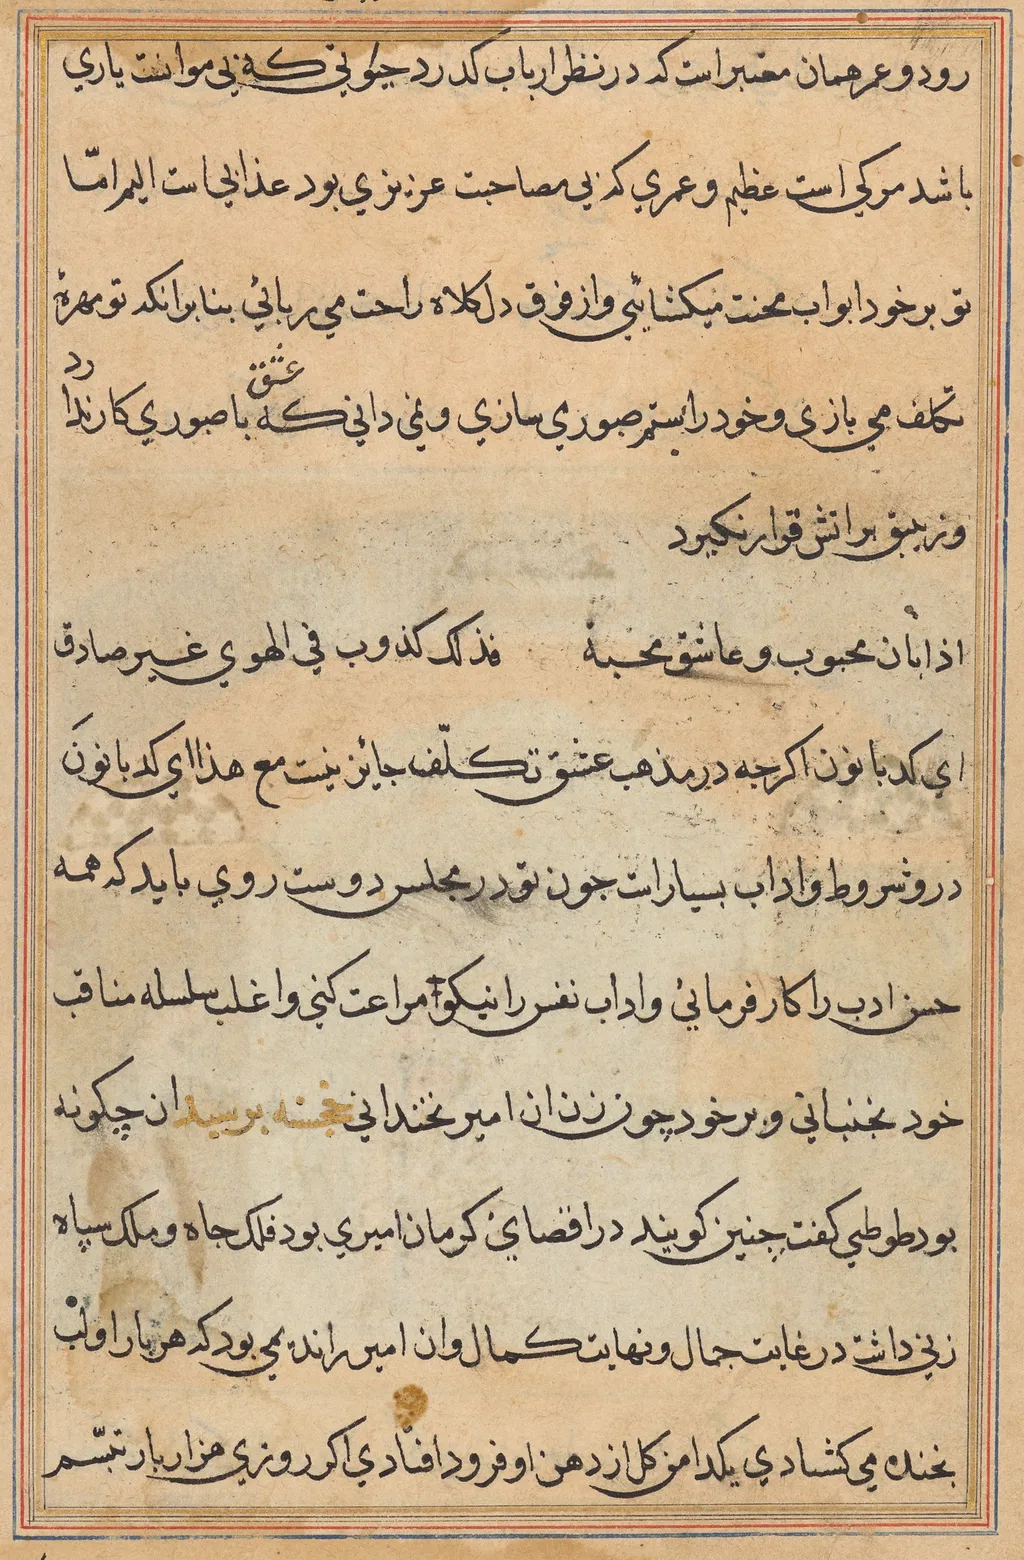 رود و عمر همان معتبر است که در نظر ارباب کدرد حیوتی که بی موانست یاری
باشد مرکی است عظیم و عمری که بی مصاحبت عزیزی بود عذابی است الیم امّا
تو بر خود ابواب محنت میکشائی و از فرق دل کلاه راحت می ربائی بنا برانکه تو مهرهٔ
تکلف می بازی و خود را بستم صبوری سازی و نمی دانی که عشق با صبوری کار ندارد
و زیبق بر اتش قرار نکیرد
اذا بان محبوب و عاشق محبة فذلک کذوب فی الهوی غیر صادق
ای کدبانون اکرچه در مذهب عشق تکلّف جائز نیست مع هذا ای کدبانونَ
درو شروط و اداب بسیار است جون تو در مجلس دوست روی باید که همه
حسن ادب را کار فرمائی و اداب نفس را نیکو مراعت کنی و اغلب سلسله مناقب
خود نجنبانی و بر خود چون زن ان امیر نخندانی خجسته برسید ان چکونه
بود طوطی کفت چنین کویند در اقصایٔ کرمان امیری بود فلک جاه و ملک سپاه
زنی داشت در غایت جمال و نهایت کمال و ان امیر را ندیمی بود که هر بار او لب
بخنده می کشادی یکدامن کل از دهن او فرود افتادی اکر روزی هزار بار تبسّم